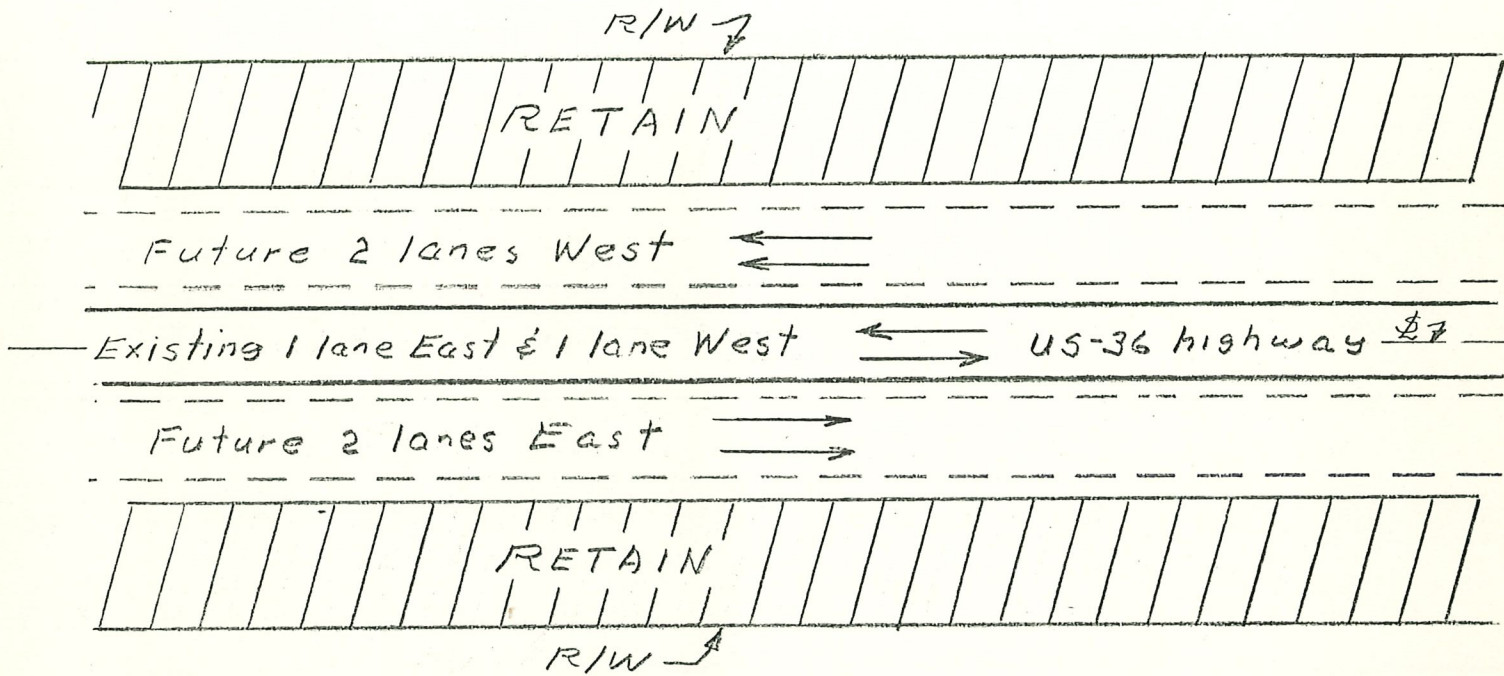 R/W
RETAIN
Future 2 lanes West
Existing 1 lane East & 1 lane West US-36 highway
Future 2 lanes East
RETAIN
R/W